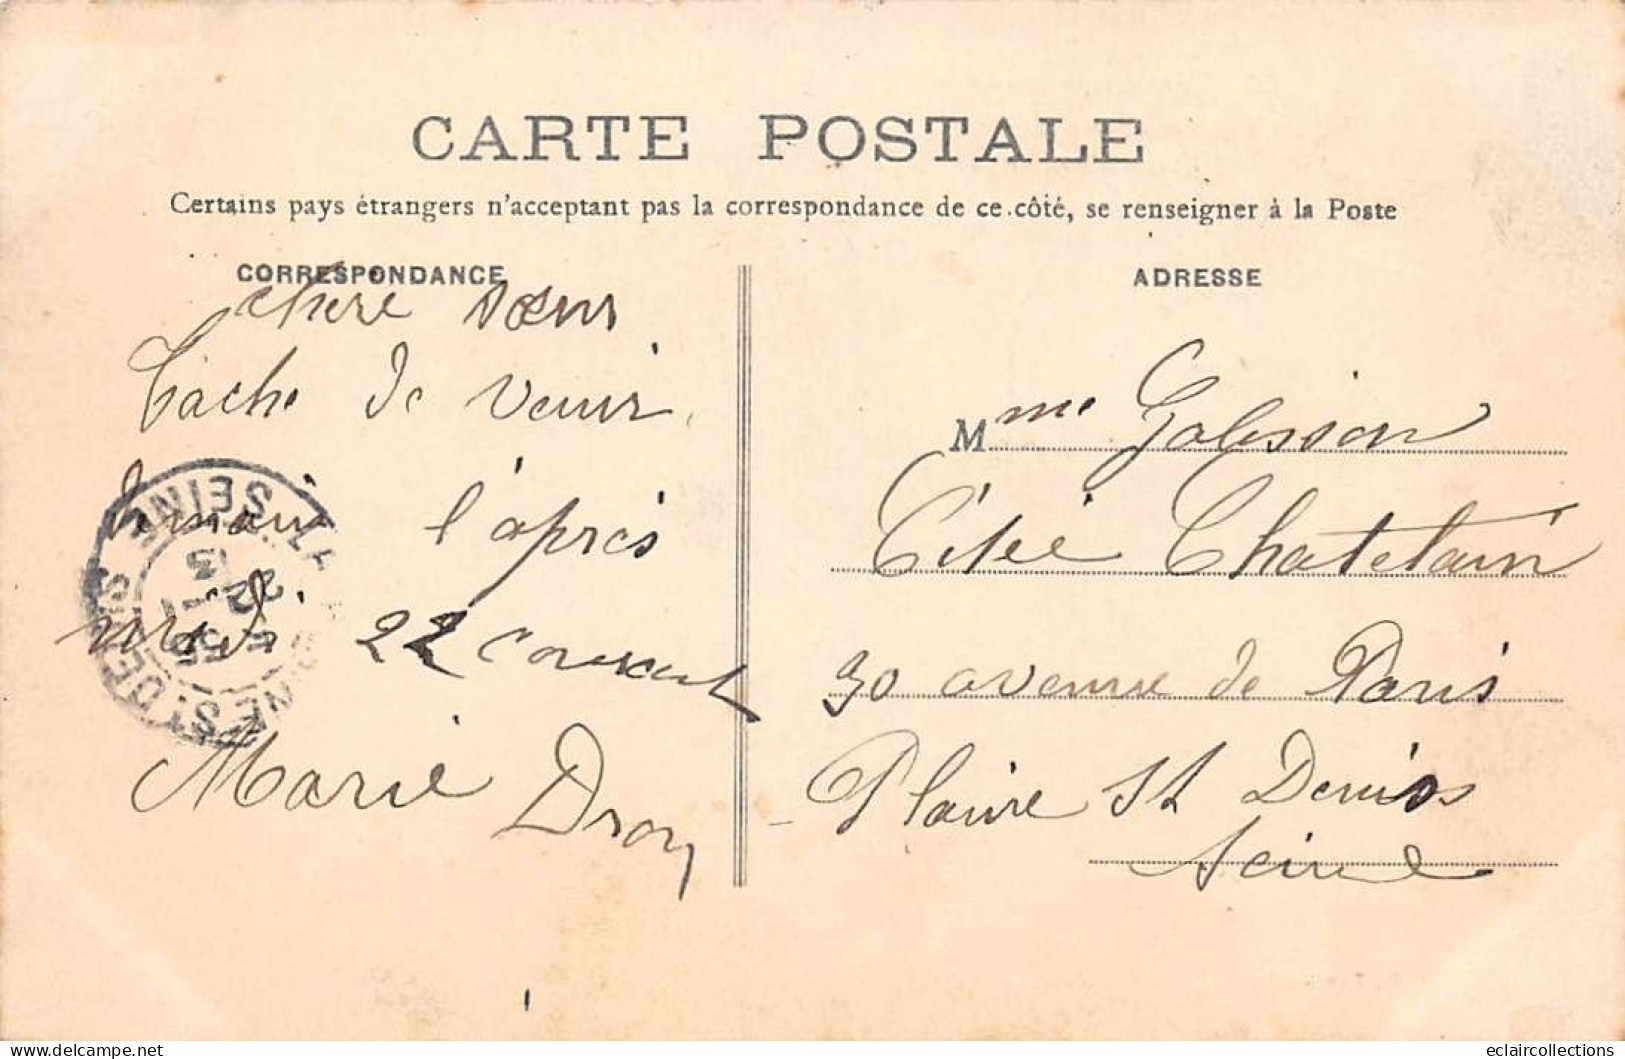 CARTE POSTALE
Certains pays étrangers n'acceptant pas la correspondance de ce côté, se renseigner à la Poste
CORRESPONDANCE
chere sœur
Tache de venir
demain l'après
midi 22 courant
Marie Dron
ADRESSE
Mme Galisson
Citée Chatelain
30 avenue de Paris
Plaine St Denis
Seine
LA PLAINE ST DENIS
SEINE
eclaircollections